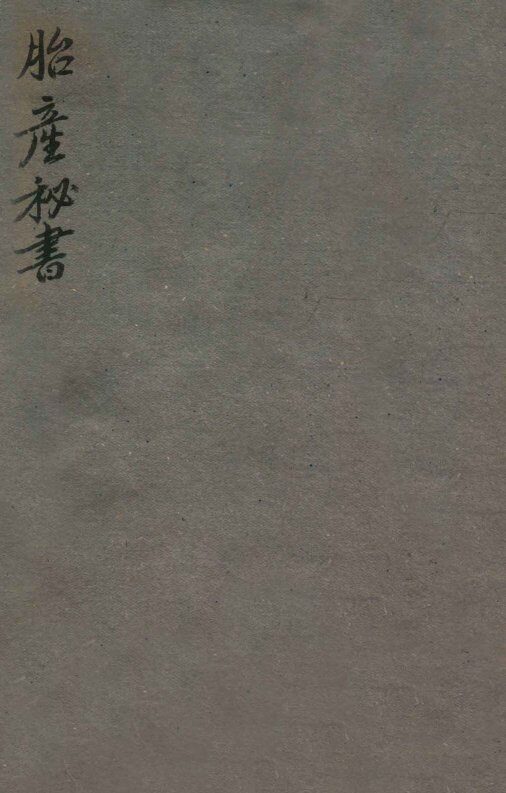 胎產秘書